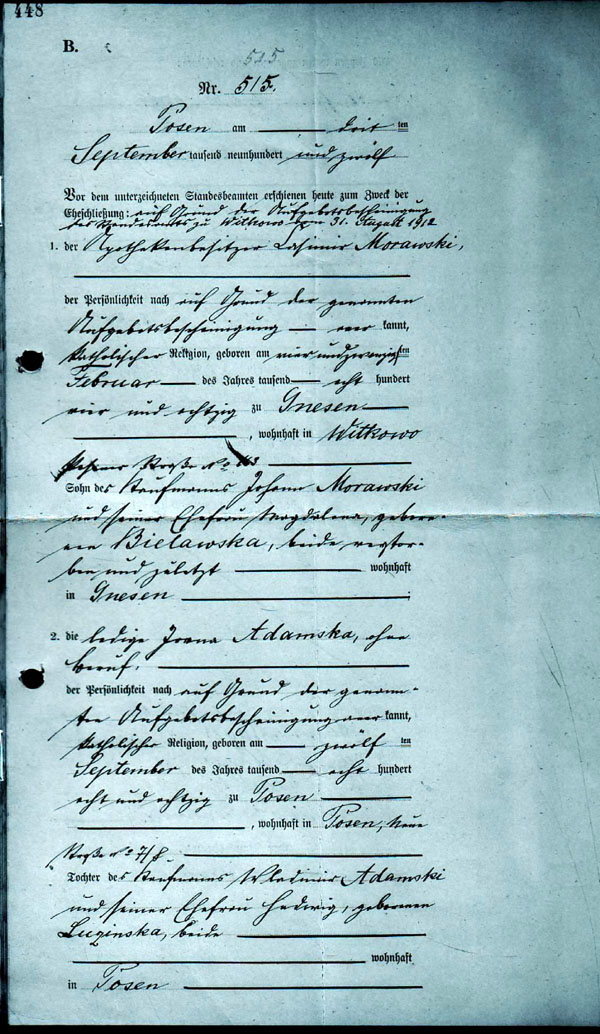 448
B.
515
Nr. 515.
Posen am dritten
September tausend neunhundert und zwölf
Vor dem unterzeichneten Standesbeamten erschienen heute zum Zweck der
Eheschließung: auf Grund der Aufgebotsbescheinigung
des Standesamts zu Witkowo vom 31. August 1912
1. der Apothekenbesitzer Casimir Morawski,
der Persönlichkeit nach auf Grund der genannten
Aufgebotsbescheinigung aner kannt,
katholischer Religion, geboren am vier und zwanzigsten
Februar des Jahres tausend acht hundert
vier und achtzig zu Gnesen
, wohnhaft in Witkowo
Straße No
Sohn des Kaufmanns Johann Morawski
und seiner Ehefrau Magdalena, gebore-
nen Bielawska, beide verstor-
ben und zuletzt wohnhaft
in Gnesen
2. die ledige Adamska, ohne
Beruf.
der Persönlichkeit nach auf Grund der genann-
ten Aufgebotsbescheinigung aner kannt,
katholischer Religion, geboren am zwölf ten
September des Jahres tausend acht hundert
acht und achtzig zu Posen
, wohnhaft in Posen, Neue
Straße No 7/8
Tochter des Kaufmanns Wladimir Adamski
und seiner Ehefrau Hedwig, geborenen
Luzinska, beide
wohnhaft
in Posen